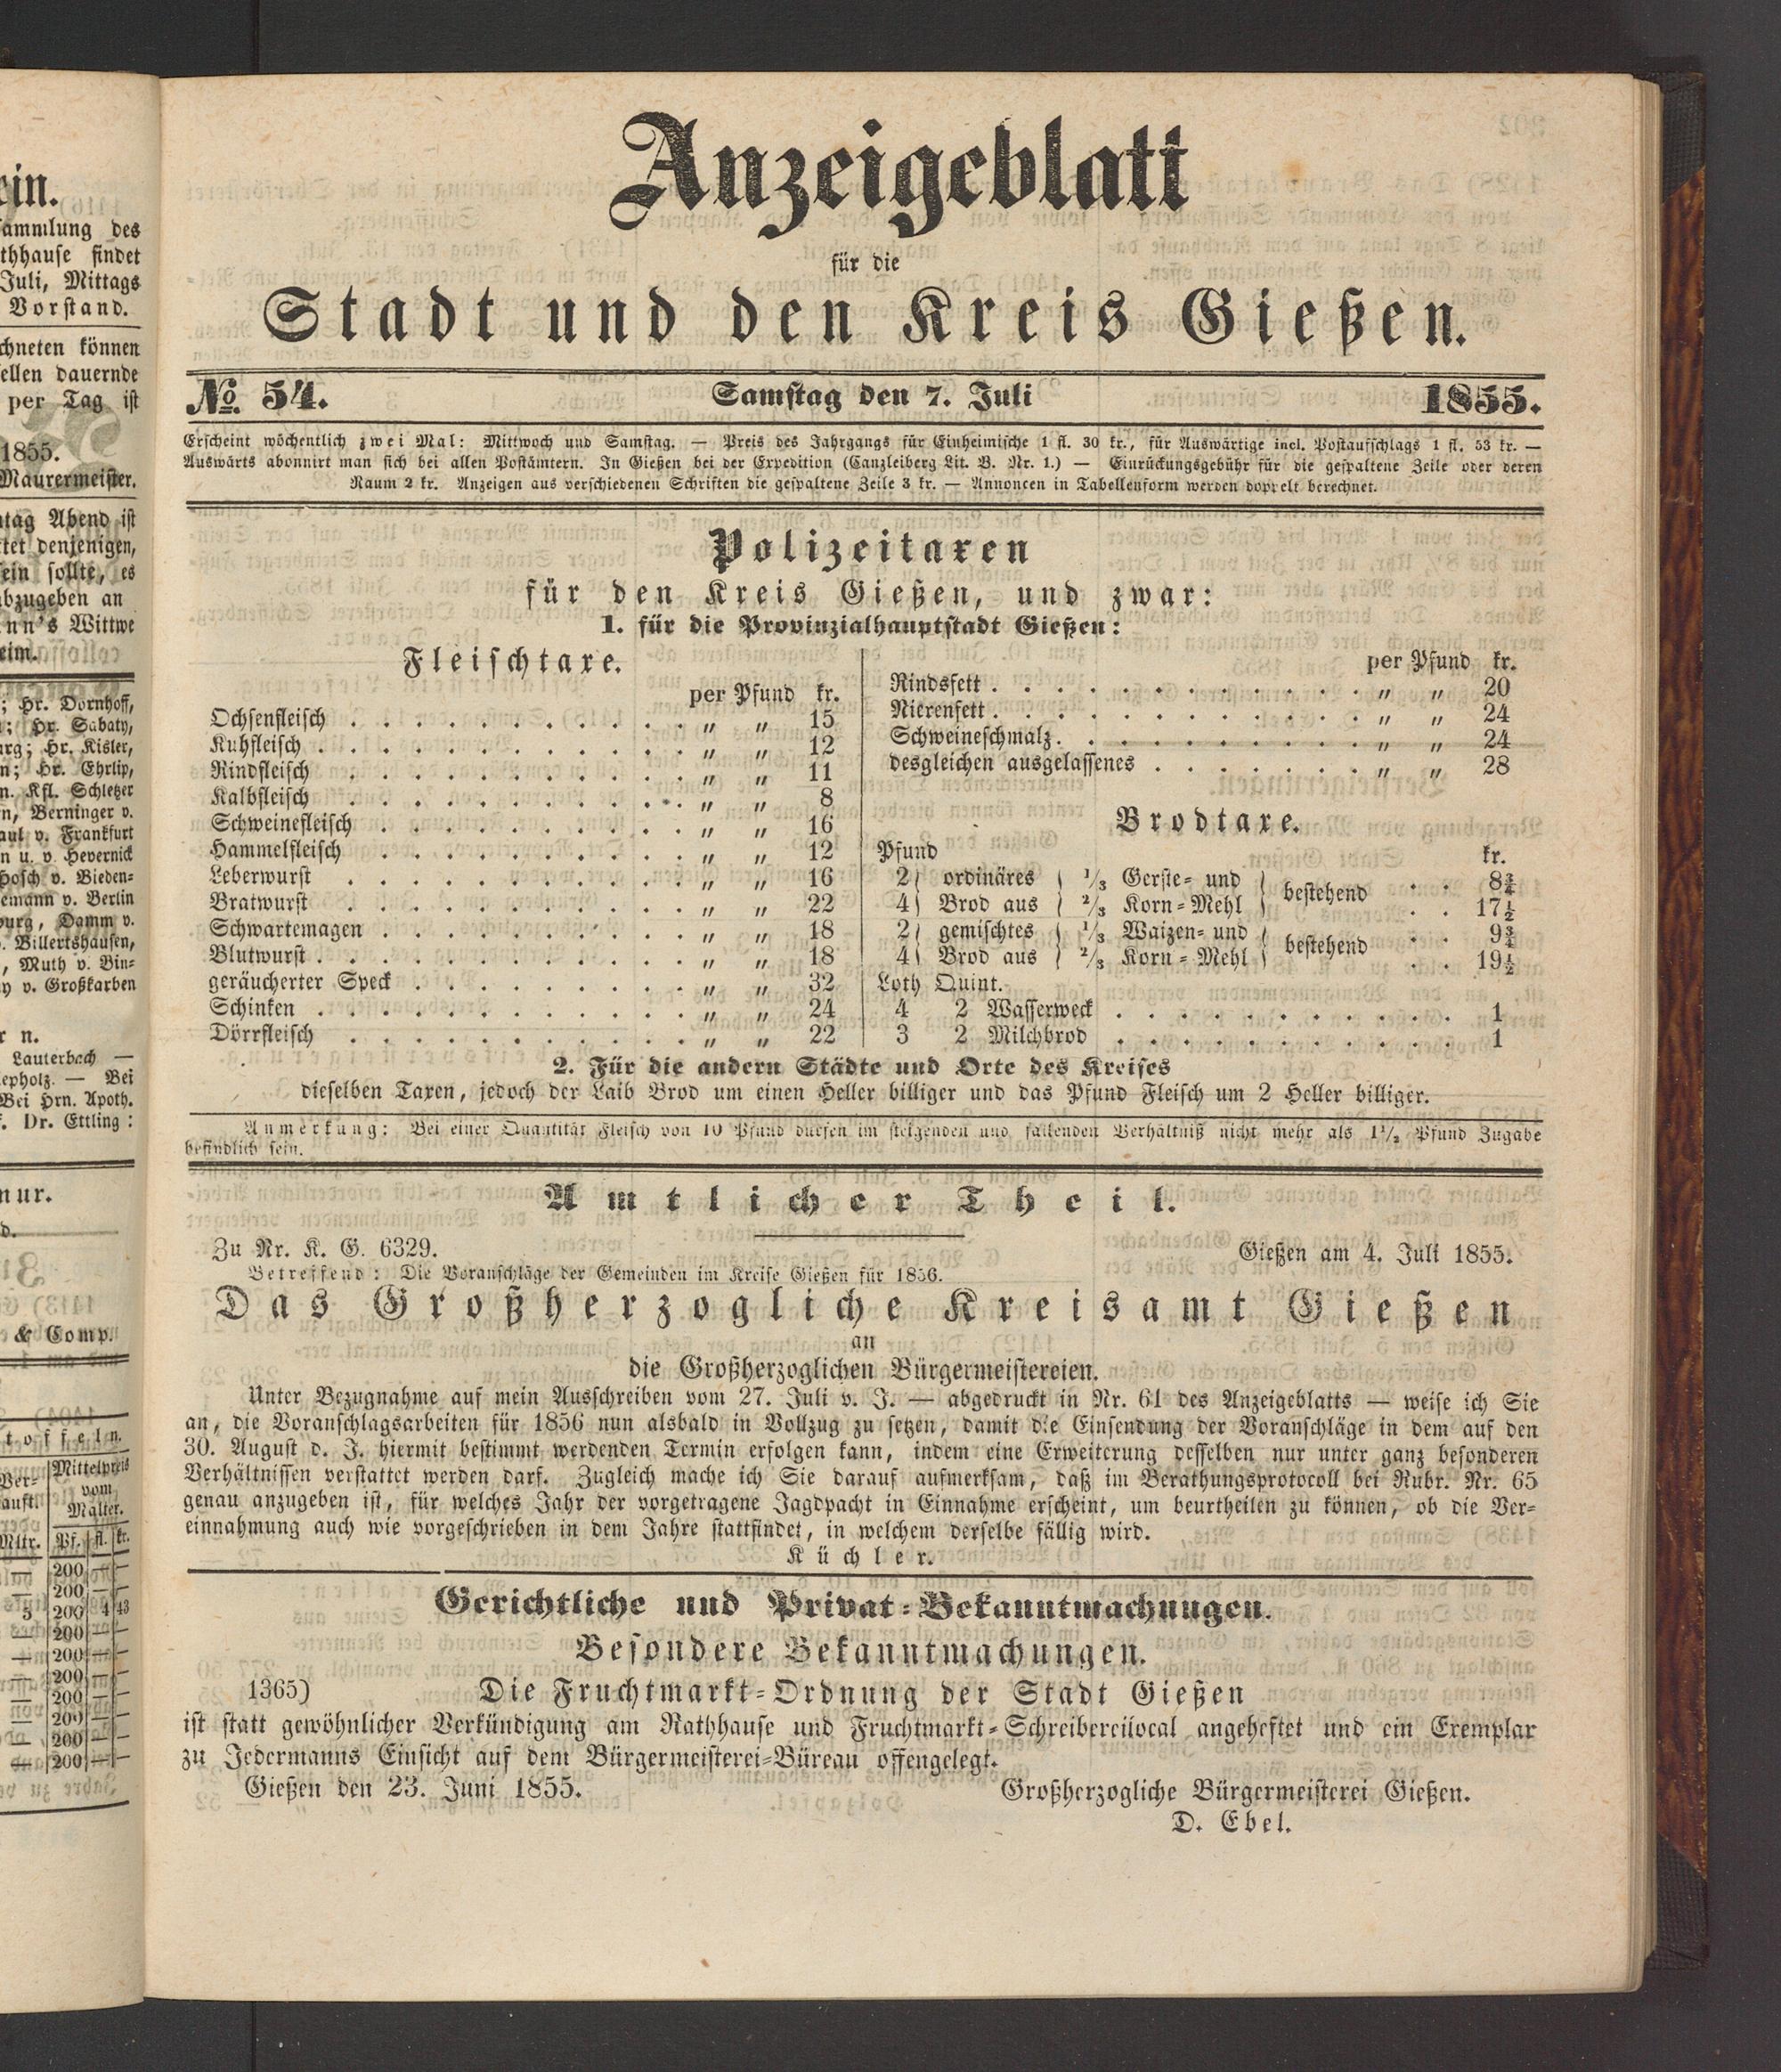 ein.
ammlung des
thhause findet
Juli, Mittags
Vorstand.
chneten können
ellen dauernde
per Tag ist
1855.
Maurermeister.
tag Abend ist
tet denjenigen,
sein sollte, es
abzugeben an
nn's Wittwe
eim.
; Hr. Dornhoff,
; Hr. Sabaty,
rg; Hr. Kisler,
n; Hr. Ehrlip,
n. Kfl. Schletzer
n, Berninger v.
aul v. Frankfurt
n u. v. Hevernick
Hosch v. Bieden-
emann v. Berlin
burg, Damm v.
. Billertshausen,
, Muth v. Bin-
y v. Großkarben
r n.
Lauterbach —
epholz. — Bei
Bei Hrn. Apoth.
. Dr. Ettling:
nur.
d.
& Comp.
toffeln.
Ver- Mittelpreis
auft. vom
Malter.
Mltr. Pf. fl. kr.
— 200 — —
— 200 — —
5 200 4 43
— 200 — —
— 200 — —
— 200 — —
— 200 — —
— 200 — —
— 200 — —
— 200 — —
Anzeigeblatt
für die
Stadt und den Kreis Gießen.
No. 54. Samstag den 7. Juli 1855.
Erscheint wöchentlich zwei Mal: Mittwoch und Samstag. — Preis des Jahrgangs für Einheimische 1 fl. 30 kr., für Auswärtige incl. Postaufschlags 1 fl. 53 kr. —
Auswärts abonnirt man sich bei allen Postämtern. In Gießen bei der Expedition (Canzleiberg Lit. B. Nr. 1.) — Einrückungsgebühr für die gespaltene Zeile oder deren
Raum 2 kr. Anzeigen aus verschiedenen Schriften die gespaltene Zeile 3 kr. — Annoncen in Tabellenform werden doppelt berechnet.
Polizeitaxen
für den Kreis Gießen, und zwar:
1. für die Provinzialhauptstadt Gießen:
Fleischtaxe.
per Pfund kr.
Ochsenfleisch . . . . . . . . . . „ „ 15
Kuhfleisch . . . . . . . . . . „ „ 12
Rindfleisch . . . . . . . . . . „ „ 11
Kalbfleisch . . . . . . . . . . „ „ 8
Schweinefleisch . . . . . . . . . „ „ 16
Hammelfleisch . . . . . . . . . . „ „ 12
Leberwurst . . . . . . . . . . „ „ 16
Bratwurst . . . . . . . . . . „ „ 22
Schwartemagen . . . . . . . . . „ „ 18
Blutwurst . . . . . . . . . . „ „ 18
geräucherter Speck . . . . . . . . „ „ 32
Schinken . . . . . . . . . . „ „ 24
Dörrfleisch . . . . . . . . . . „ „ 22
per Pfund kr.
Rindsfett . . . . . . . . . . „ „ 20
Nierenfett . . . . . . . . . . „ „ 24
Schweineschmalz . . . . . . . . . „ „ 24
desgleichen ausgelassenes . . . . . . . „ „ 28
Brodtaxe.
Pfund kr.
2 ordinäres 1/3 Gerste- und bestehend . . 8 3/4
4 Brod aus 2/3 Korn-Mehl . . 17 1/2
2 gemischtes 1/3 Waizen- und bestehend . . 9 3/4
4 Brod aus 2/3 Korn-Mehl . . 19 1/2
Loth Quint.
4 2 Wasserweck . . . . . . . . . . 1
3 2 Milchbrod . . . . . . . . . . 1
2. Für die andern Städte und Orte des Kreises
dieselben Taxen, jedoch der Laib Brod um einen Heller billiger und das Pfund Fleisch um 2 Heller billiger.
Anmerkung: Bei einer Quantität Fleisch von 10 Pfund dürfen im steigenden und fallenden Verhältniß nicht mehr als 1 1/2 Pfund Zugabe
befindlich sein.
Amtlicher Theil.
Zu Nr. K. G. 6329. Gießen am 4. Juli 1855.
Betreffend: Die Voranschläge der Gemeinden im Kreise Gießen für 1856.
Das Großherzogliche Kreisamt Gießen
an
die Großherzoglichen Bürgermeistereien.
Unter Bezugnahme auf mein Ausschreiben vom 27. Juli v. J. — abgedruckt in Nr. 61 des Anzeigeblatts — weise ich Sie
an, die Voranschlagsarbeiten für 1856 nun alsbald in Vollzug zu setzen, damit die Einsendung der Voranschläge in dem auf den
30. August d. J. hiermit bestimmt werdenden Termin erfolgen kann, indem eine Erweiterung desselben nur unter ganz besonderen
Verhältnissen verstattet werden darf. Zugleich mache ich Sie darauf aufmerksam, daß im Berathungsprotocoll bei Rubr. Nr. 65
genau anzugeben ist, für welches Jahr der vorgetragene Jagdpacht in Einnahme erscheint, um beurtheilen zu können, ob die Ver-
einnahmung auch wie vorgeschrieben in dem Jahre stattfindet, in welchem derselbe fällig wird.
Küchler.
Gerichtliche und Privat-Bekanntmachungen.
Besondere Bekanntmachungen.
1365) Die Fruchtmarkt-Ordnung der Stadt Gießen
ist statt gewöhnlicher Verkündigung am Rathhause und Fruchtmarkt-Schreibereilocal angeheftet und ein Exemplar
zu Jedermanns Einsicht auf dem Bürgermeisterei-Büreau offengelegt.
Gießen den 23. Juni 1855. Großherzogliche Bürgermeisterei Gießen.
D. Ebel.